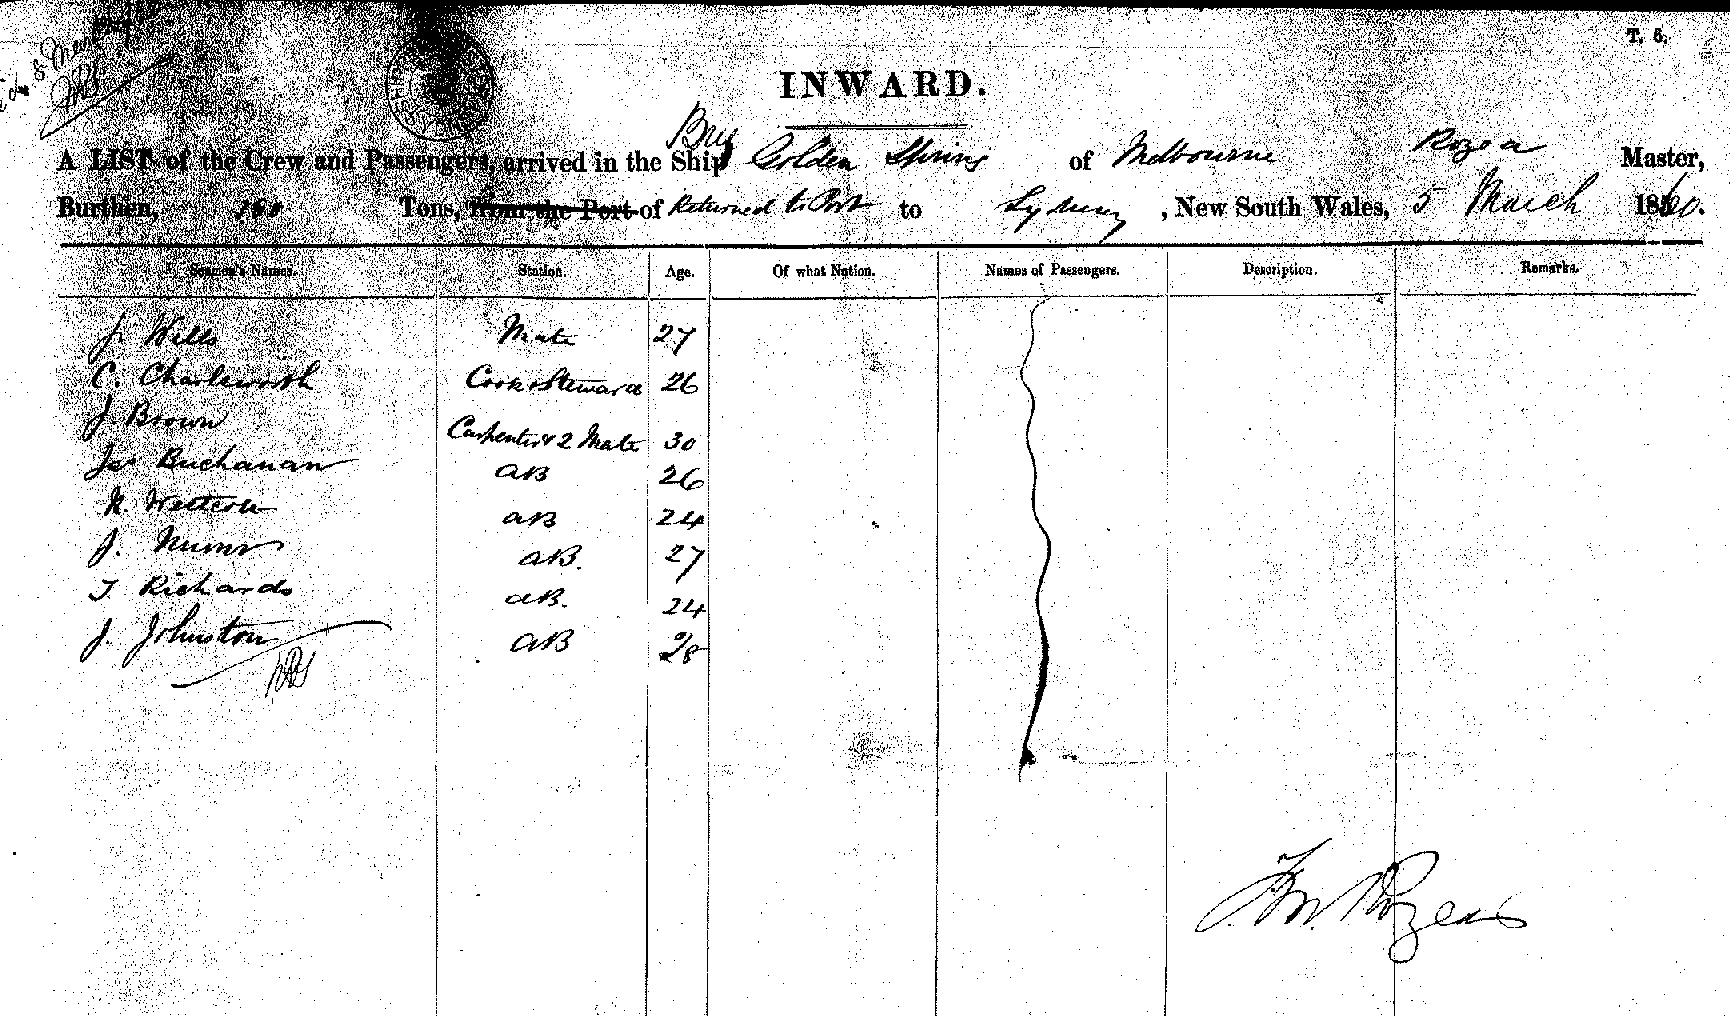 T. 6.
INWARD.
Brig
A LIST of the Crew and Passengers, arrived in the Ship Golden Spring of Melbourne Rozea Master,
Burthen, 160 Tons, from the Port of Returned to Port to Sydney, New South Wales, 5 March 1860.
Seamen's Names. Station. Age. Of what Nation. Names of Passengers. Description. Remarks.
J. Wills Mate 27
C. Charlesworth Cook & Steward 26
J. Brown Carpenter & 2 Mate 30
Jas Buchanan AB 26
AB 24
J. AB. 27
T Richards AB. 24
J. Johnston AB 28